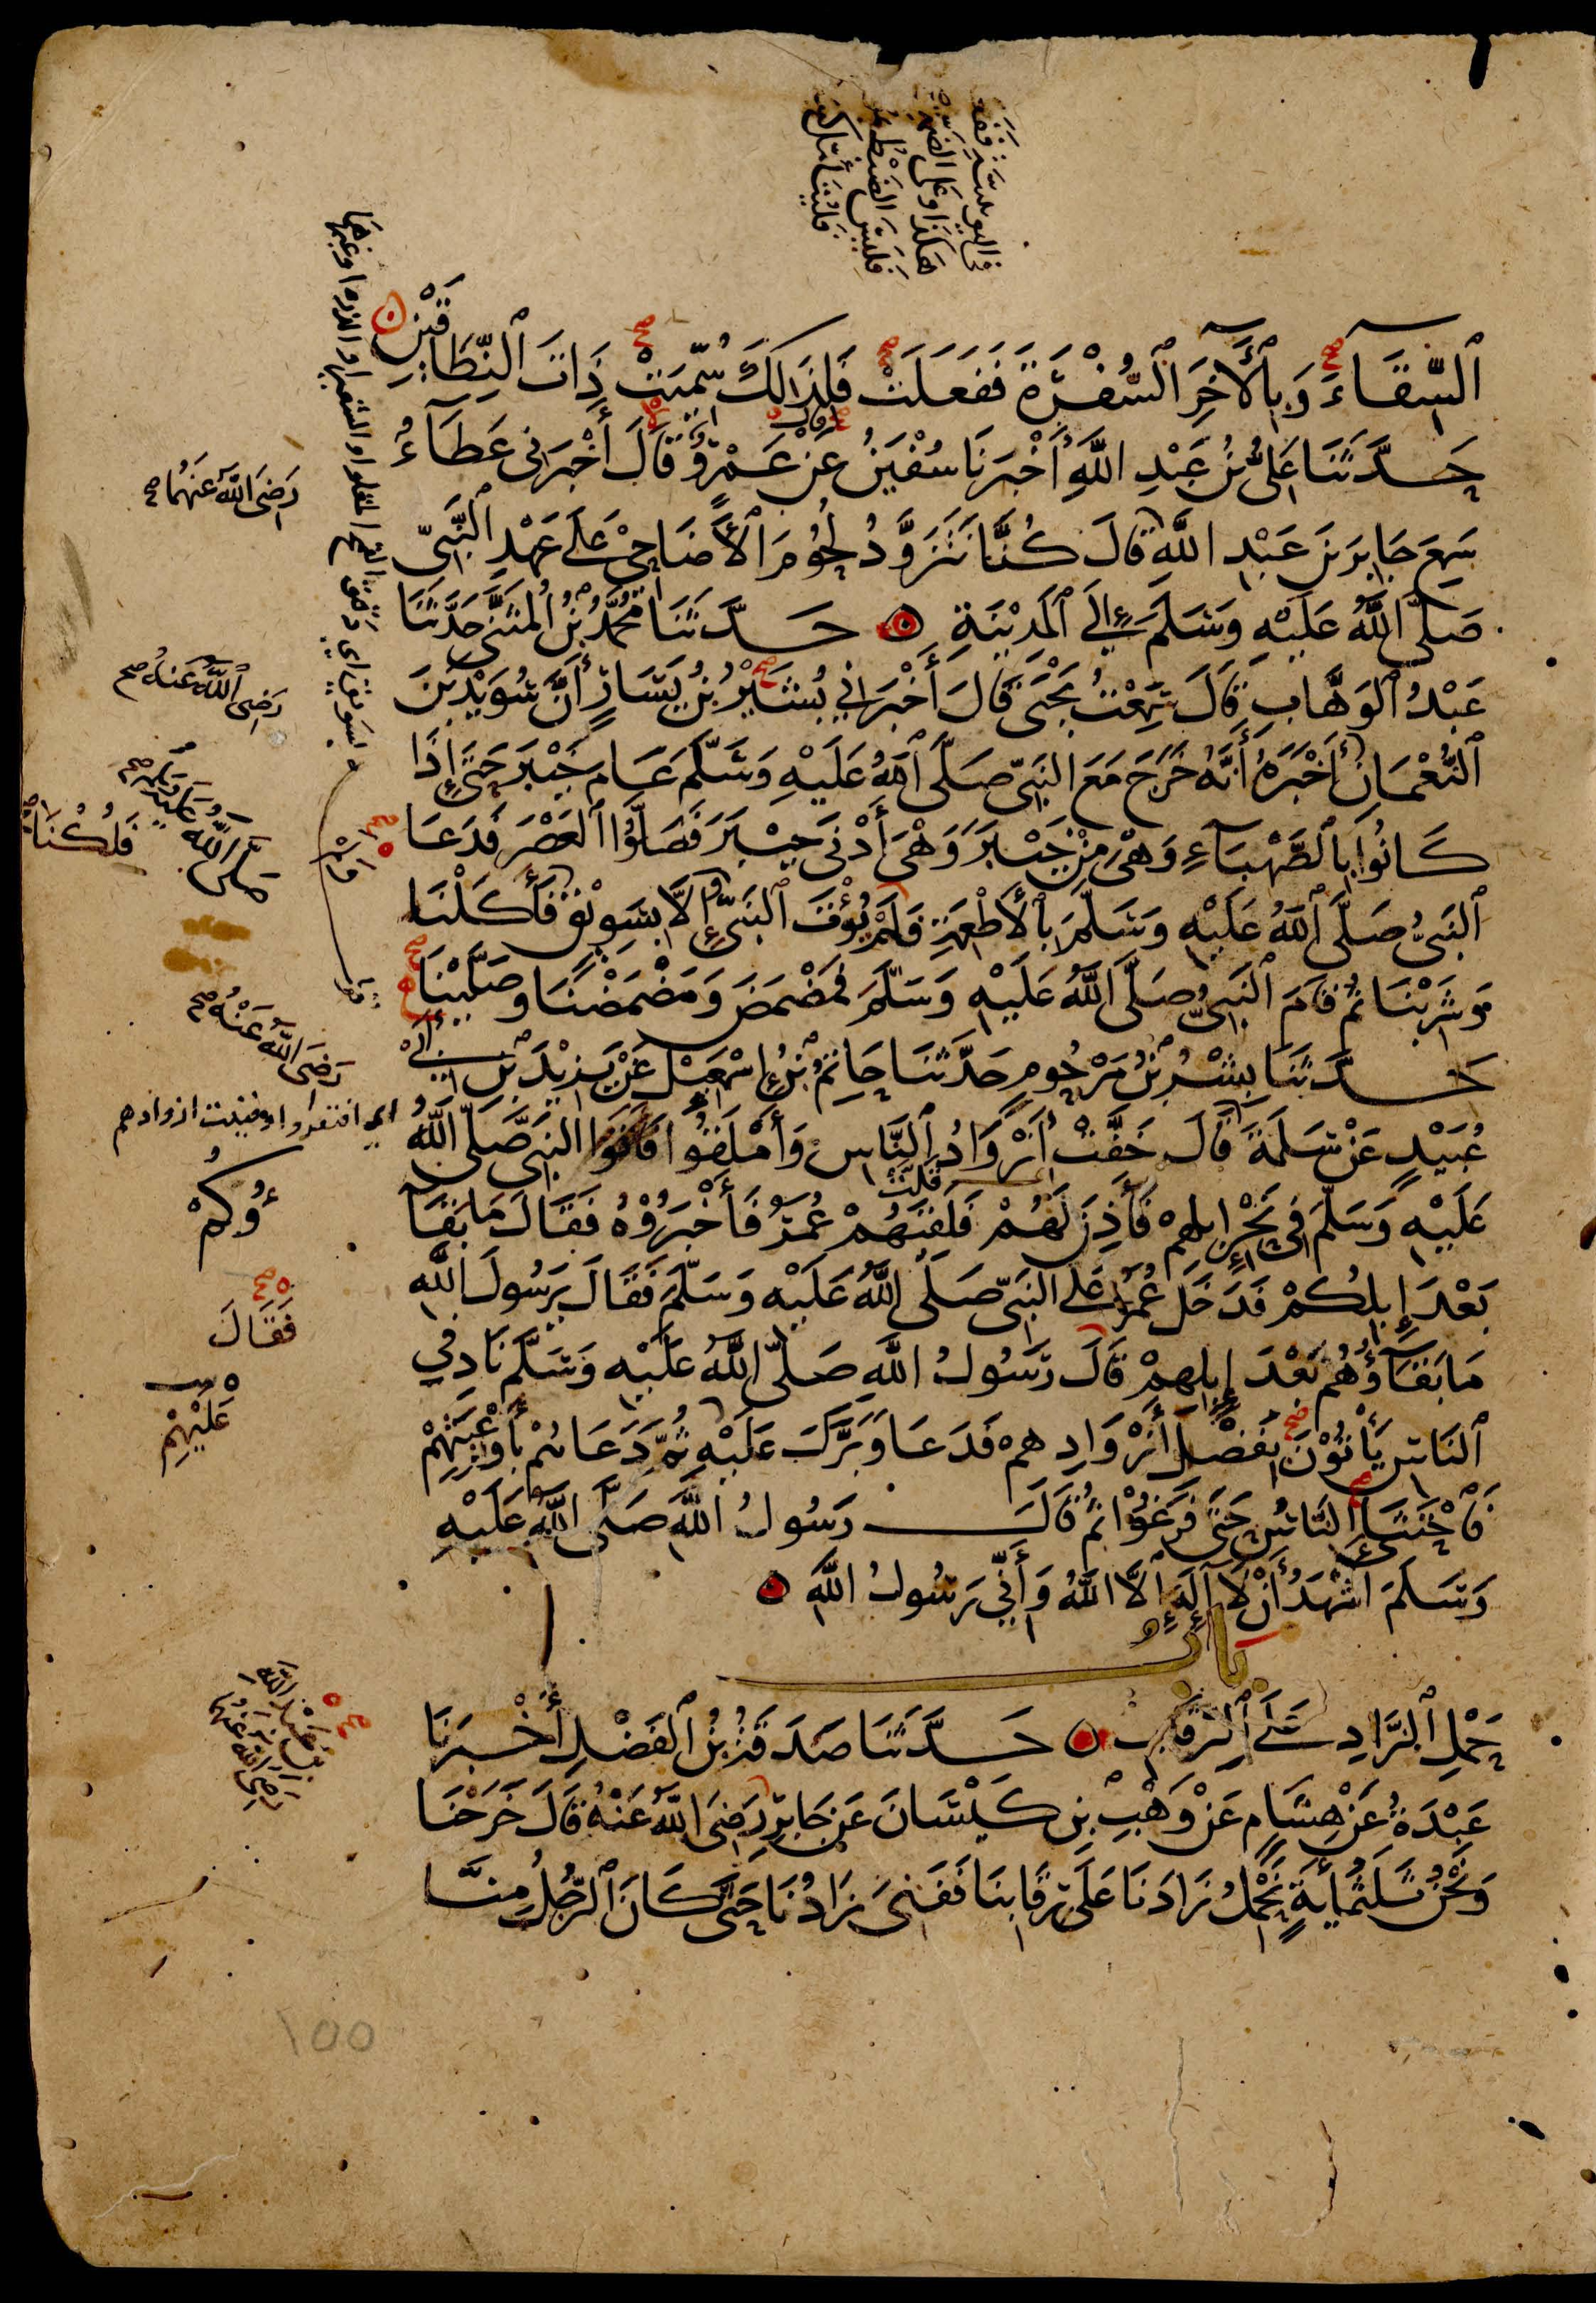 ٱلسِّقَآءَ وَبِٱلْآخَرِ ٱلسُّفْرَةَ فَفَعَلَتْ فَلِذَالِكَ سُمِّيَتْ ذَاتَ ٱلنِّطَاقَيْنِ
حَدَّثَنَا عَلِيُّ بْنُ عَبْدِ اللَّهِ أَخْبَرَنَا سُفْيَنُ عَنْ عَمْرٍو قَالَ أَخْبَرَنِى عَطَآءٌ
سَمِعَ جَابِرَ بْنَ عَبْدِ اللَّهِ قَالَ كُنَّا نَتَزَوَّدُ لُحُومَ ٱلْأَضَاحِيْ عَلَى عَهْدِ ٱلنَّبِيِّ
صَلَّى ٱللَّهُ عَلَيْهِ وَسَلَّمَ إِلَى ٱلْمَدِيْنَةِ حَدَّثَنَا مُحَمَّدُ بْنُ ٱلْمُثَنَّى حَدَّثَنَا
عَبْدُ ٱلْوَهَّابِ قَالَ سَمِعْتُ يَحْيَى قَالَ أَخْبَرَنِي بُشَيْرُ بْنُ يَسَارٍ أَنَّ سُوَيْدَ بْنَ
ٱلنُّعْمَانِ أَخْبَرَهُ أَنَّهُ خَرَجَ مَعَ النَّبِيِّ صَلَّى ٱللَّهُ عَلَيْهِ وَسَلَّمَ عَامَ خَيْبَرَ حَتَّى إِذَا
كَانُوا بِٱلصَّهْبَآءِ وَهْىَ مِنْ خَيْبَرَ وَهْىَ أَدْنَى خَيْبَرَ فَصَلَّوُا ٱلْعَصْرَ فَدَعَا
ٱلنَّبِيُّ صَلَّى ٱللَّهُ عَلَيْهِ وَسَلَّمَ بِٱلْأَطْعِمَةِ فَلَمْ يُؤْتَ ٱلنَّبِيُّ إِلَّا بِسَوِيْقٍ فَأَكَلْنَا
وَشَرِبْنَا ثُمَّ قَامَ ٱلنَّبِيُّ صَلَّى ٱللَّهُ عَلَيْهِ وَسَلَّمَ فَمَضْمَضَ وَمَضْمَضْنَا وَصَلَّيْنَا
حَدَّثَنَا بِشْرُ بْنُ مَرْحُومٍ حَدَّثَنَا حَاتِمُ بْنُ إِسْمَعِيْلَ عَنْ يَزِيْدَ بْنِ أَبِيْ
عُبَيْدٍ عَنْ سَلَمَةَ قَالَ خَفَّتْ أَزْوَادُ ٱلنَّاسِ وَأَمْلَقُوا فَأَتَوُا النَّبِيَّ صَلَّى ٱللَّهُ
عَلَيْهِ وَسَلَّمَ فِي نَحْرِ إِبِلِهِمْ فَأَذِنَ لَهُمْ فَلَقِيَهُمْ عُمَرُ فَأَخْبَرُوْهُ فَقَالَ مَا بَقَآ
بَعْدَ إِبِلِكُمْ فَدَخَلَ عُمَرُ عَلَى النَّبِيِّ صَلَّى ٱللَّهُ عَلَيْهِ وَسَلَّمَ فَقَالَ يَرَسُولَ ٱللَّهِ
مَا بَقَآؤُهُمْ بَعْدَ إِبِلِهِمْ قَالَ رَسُولُ اللَّهِ صَلَّى ٱللَّهُ عَلَيْهِ وَسَلَّمَ نَادِ فِي
ٱلنَّاسِ يَأْتُوْنَ بِفَضْلِ أَزْوَادِهِمْ فَدَعَا وَبَرَّكَ عَلَيْهِ ثُمَّ دَعَاهُمْ بِأَوْعِيَتِهِمْ
فَٱحْتَثَى ٱلنَّاسُ حَتَّى فَرَغُوْا ثُمَّ قَالَ رَسُولُ اللَّهِ صَلَّى ٱللَّهُ عَلَيْهِ
وَسَلَّمَ أَشْهَدُ أَنْ لَا إِلَهَ إِلَّا اللَّهُ وَأَنِّي رَسُولُ اللَّهِ
بَابُ
حَمْلِ ٱلزَّادِ عَلَى ٱلرِّقَابِ حَدَّثَنَا صَدَقَةُ بْنُ ٱلْفَضْلِ أَخْبَرَنَا
عَبْدَةُ عَنْ هِشَامٍ عَنْ وَهْبِ بْنِ كَيْسَانَ عَنْ جَابِرٍ رَضِىَ اللَّهُ عَنْهُ قَالَ خَرَجْنَا
وَنَحْنُ ثَلَثُمِأَيَةٍ نَحْمِلُ زَادَنَا عَلَى رِقَابِنَا فَفَنِىَ زَادُنَا حَتَّى كَانَ ٱلرَّجُلُ مِنَّا
رَضِىَ اللَّهُ عَنْهُمَا صح
رَضِىَ ٱللَّهُ عَنْهُ صح
صَلَّى اللَّهُ عَلَيْهِ وَسَلَّمَ صح
فَلُكْنَا
رَضِىَ اللَّهُ عَنْهُ صح
اى افتقروا او فنيت ازوادهم
ؤُكُمْ
فَقَالَ
عَلَيْهِمْ
بن عَبْدِ اللَّهِ
رَضِىَ اللَّهُ عَنْهُمَا
١٥٥